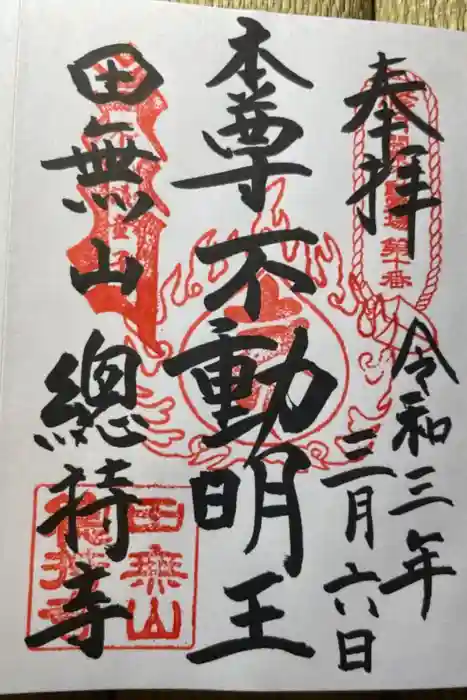 奉拝
令和三年
三月六日
本尊不動明王
田無山
總持寺
田無山
總持寺